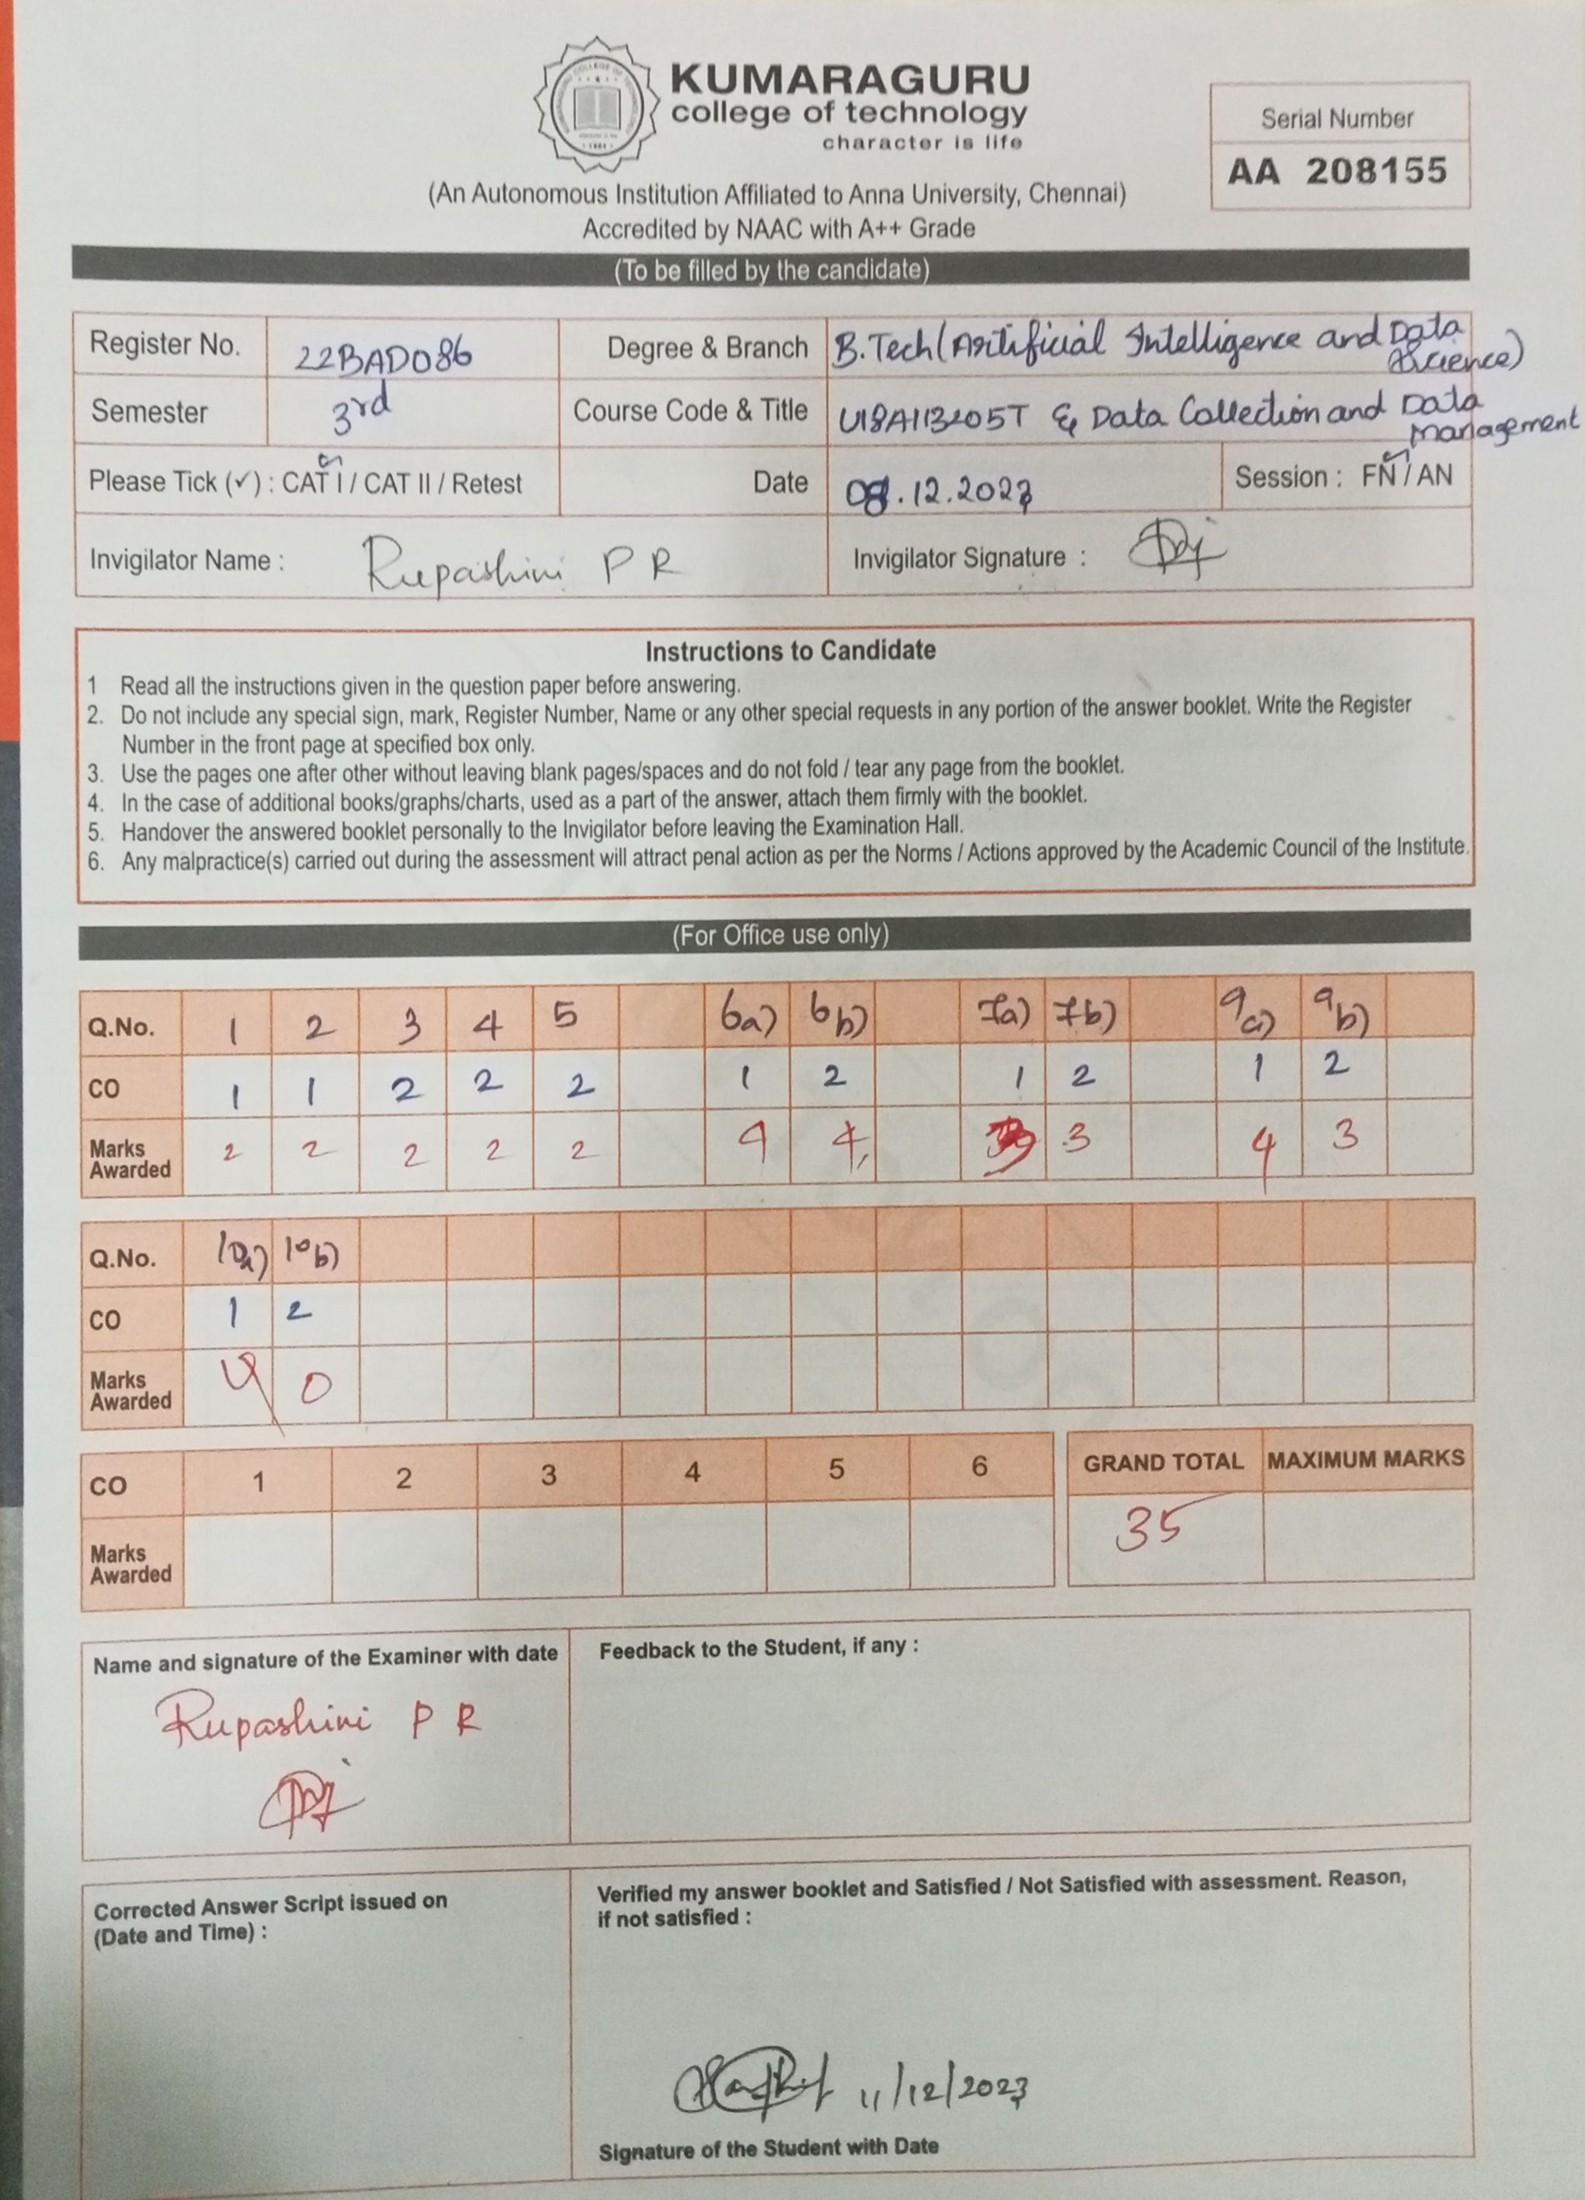 KUMARAGURU
college of technology
character is life
(An Autonomous Institution Affiliated to Anna University, Chennai)
Accredited by NAAC with A++ Grade
Serial Number
AA 208155
(To be filled by the candidate)
Register No. 22BAD086 Degree & Branch B.Tech (Artificial Intelligence and Data Science)
Semester 3rd Course Code & Title U18AI13205T & Data Collection and Data Management
Please Tick (✓) : CAT I / CAT II / Retest Date 08.12.2023 Session : FN / AN
Invigilator Name : Rupashini P R Invigilator Signature :
Instructions to Candidate
1 Read all the instructions given in the question paper before answering.
2. Do not include any special sign, mark, Register Number, Name or any other special requests in any portion of the answer booklet. Write the Register
Number in the front page at specified box only.
3. Use the pages one after other without leaving blank pages/spaces and do not fold / tear any page from the booklet.
4. In the case of additional books/graphs/charts, used as a part of the answer, attach them firmly with the booklet.
5. Handover the answered booklet personally to the Invigilator before leaving the Examination Hall.
6. Any malpractice(s) carried out during the assessment will attract penal action as per the Norms / Actions approved by the Academic Council of the Institute.
(For Office use only)
Q.No. 1 2 3 4 5 6a) 6b) 7a) 7b) 9a) 9b)
CO 1 1 2 2 2 1 2 1 2 1 2
Marks Awarded 2 2 2 2 2 4 4 3 3 4 3
Q.No. 10a) 10b)
CO 1 2
Marks Awarded 4 0
CO 1 2 3 4 5 6 GRAND TOTAL MAXIMUM MARKS
Marks Awarded 35
Name and signature of the Examiner with date
Rupashini P R
Feedback to the Student, if any :
Corrected Answer Script issued on
(Date and Time) :
Verified my answer booklet and Satisfied / Not Satisfied with assessment. Reason,
if not satisfied :
11/12/2023
Signature of the Student with Date